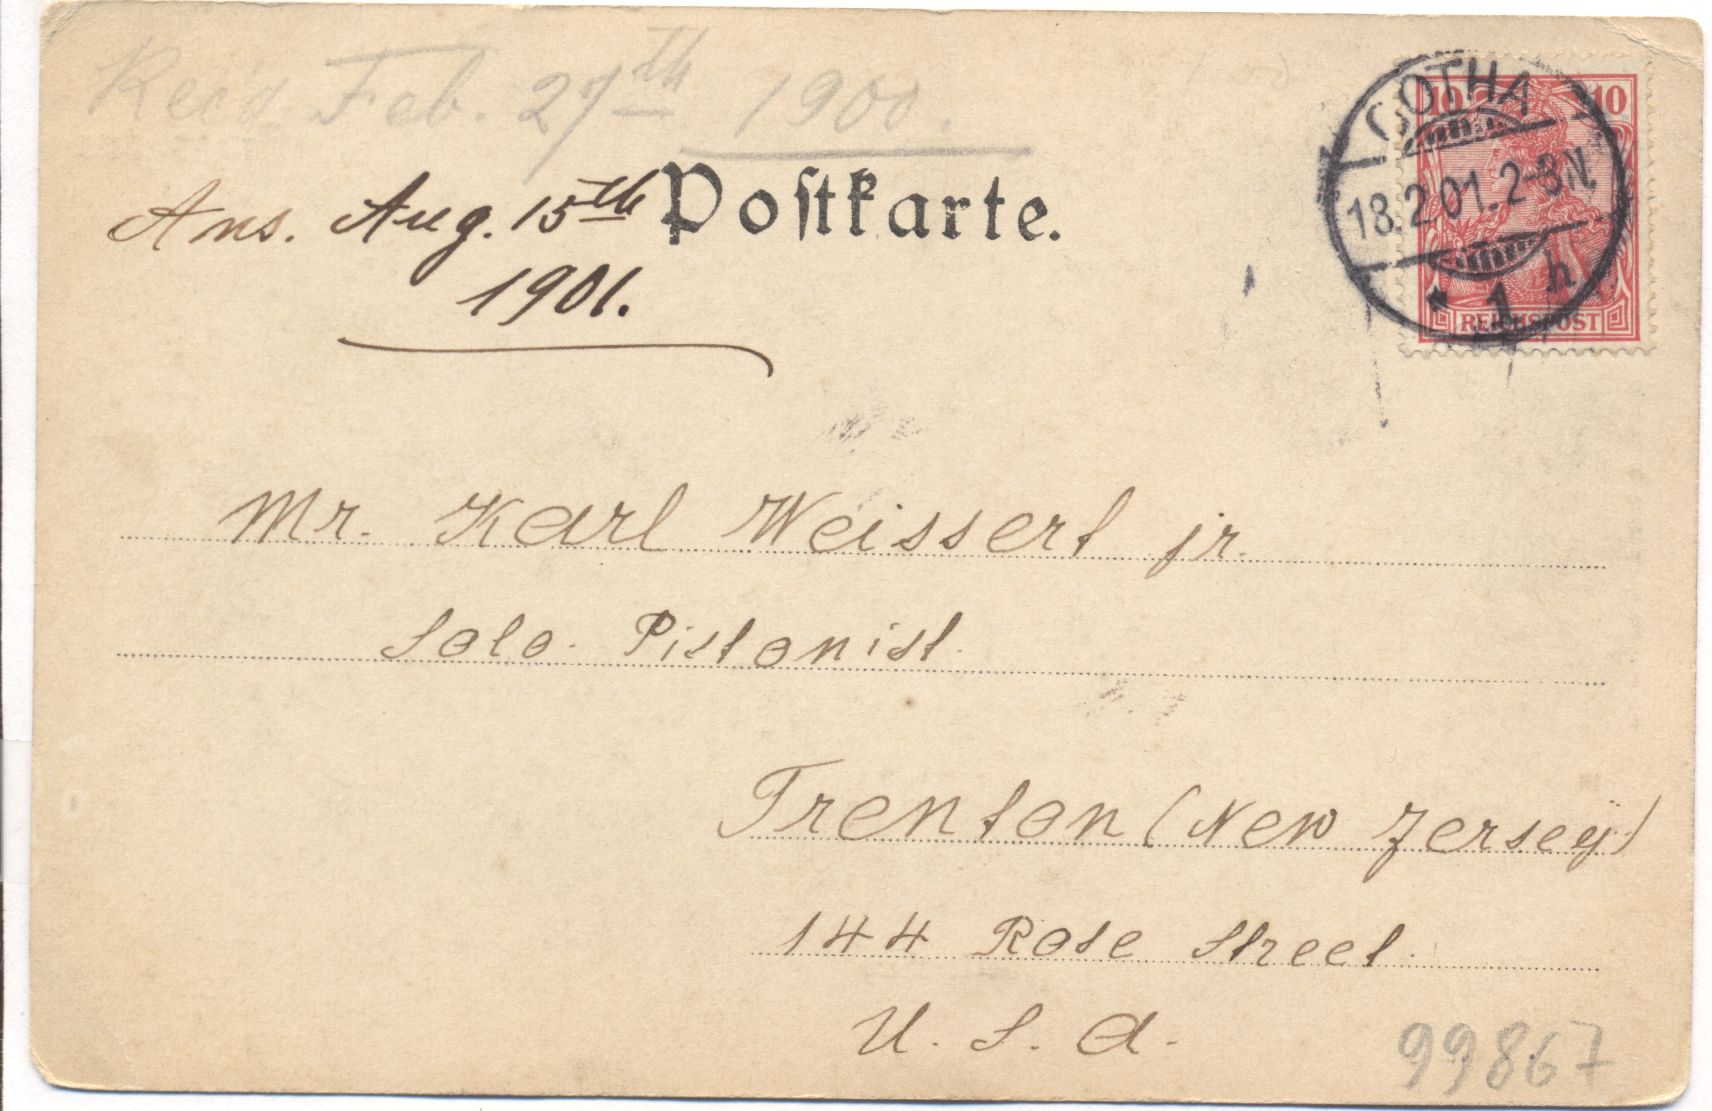 Rec'd Feb. 27th 1900.
Ans. Aug. 15th
1901.
Poſtkarte.
GOTHA
18.2.01.2-3N.
* 1 h
10 10
REICHSPOST
Mr. Karl Weissert jr.
Solo Pistonist.
Trenton (New Jersey)
144 Rose Street.
U. S. A.
99867